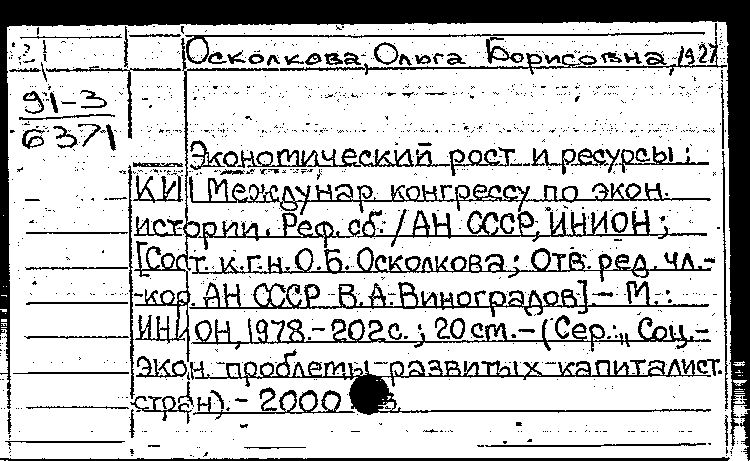 Осколкова, Ольга Борисовна, 1927
91-3
6371
Экономический рост и ресурсы:
К VII Междунар. конгрессу по экон.
истории. Реф. сб. / АН СССР, ИНИОН;
[Сост. к.г.н. О.Б. Осколкова; Отв. ред. чл.-
-кор. АН СССР В.А. Виноградов]. - М.:
ИНИОН, 1978. - 202 с.; 20 см. - (Сер.: „Соц.-
экон. проблемы развитых капиталист.
стран). - 2000